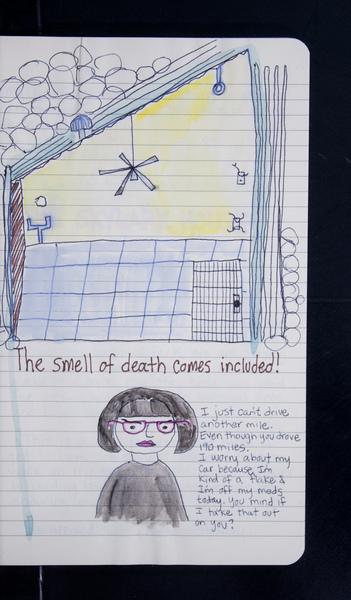 The smell of death comes included!
I just can't drive
another mile.
Even though you drove
190 miles.
I worry about my
car because I'm
kind of a flake &
I'm off my meds
today. You mind if
I take that out
on you?